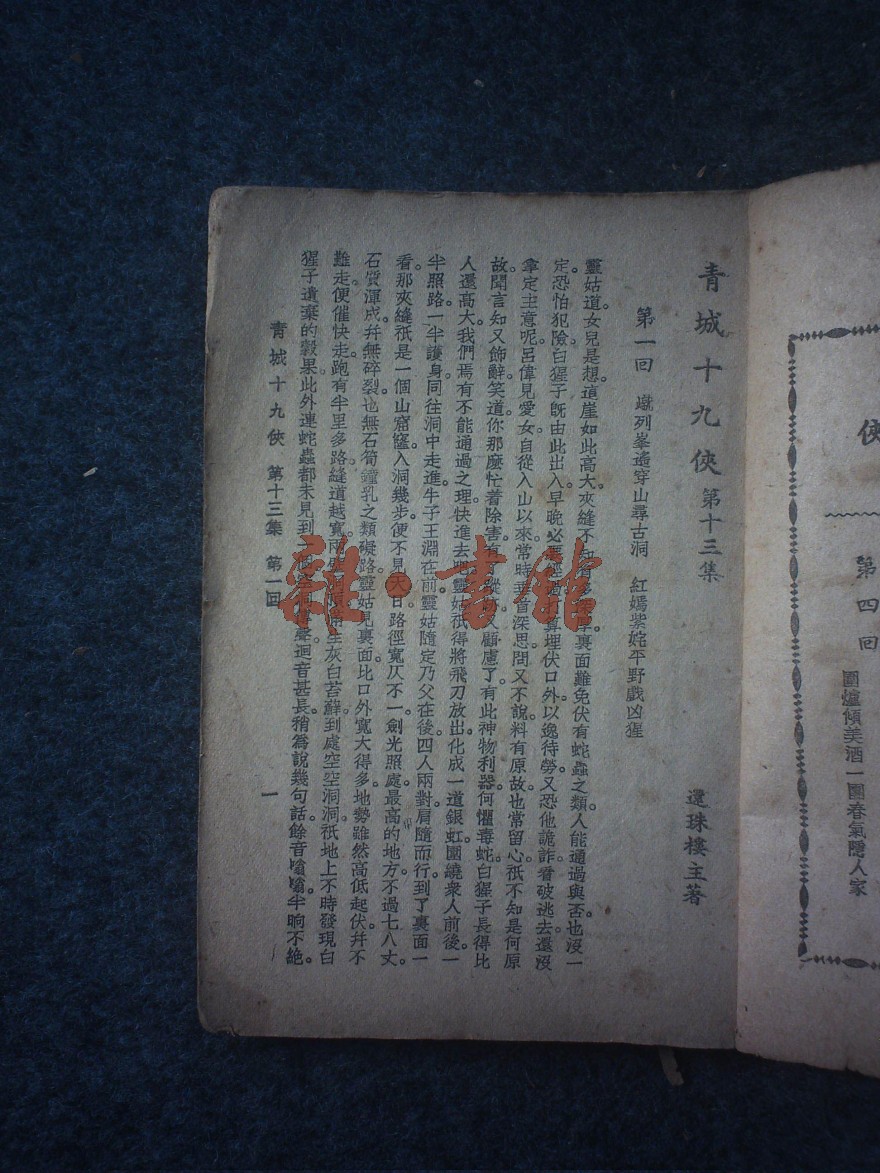 俠
第四回
圍爐傾美酒一團春氣隱人家
青城十九俠 第十三集
還珠樓主著
第一回 巇列峯遙穿山尋古洞 紅嫣紫姹平野戲凶猩
靈姑道女兒是想這崖如此高大夾縫不知有多深厚裏面難免伏有蛇蟲之類人能通過與否也沒一
定。恐怕犯險白猩子既由此出入早晚必要經過打算埋伏口外以逸待勞又恐他詭詐看破逃去還沒
拿定主意呢呂偉見愛女自從入山以來常時垂首深思問又不說料有原故也常留心祇不知是何原
故。聞言知又飾辭笑道你那麼忙着除害有了蹤跡又顧慮了。有此神物利器。何懼毒蛇。白猩子長得比
人還高大我們焉有不能通過之理。快進去吧。靈姑祇得將飛刀放出。化成一道銀虹圍繞衆人前後一
半照路。一半護身。同往洞中走進。牛子王淵在前。靈姑隨定乃父在後。四人兩對肩隨而行。到了裏面一
看。那夾縫祇是一個山窟窿入洞幾步便不見天日路徑寬仄不一。劍光照處。最高的地方不過七八丈。
石質渾成。并無碎裂。也無石筍鐘乳之類礙路。靈姑見裏面比口外寬大得多。地勢雖然高低起伏。并不
難走。便催快走。跑有半里多路。縫道越寬。兩 灰白苔蘚。到處空空洞洞。祇地上不時發現白
猩子遺棄的穀果。此外連蛇蟲都未見到一個。 迴音甚長。稍爲說幾句話。餘音嗡嗡。半晌不絶。
青城十九俠 第十三集 第一回
一
雜·書館